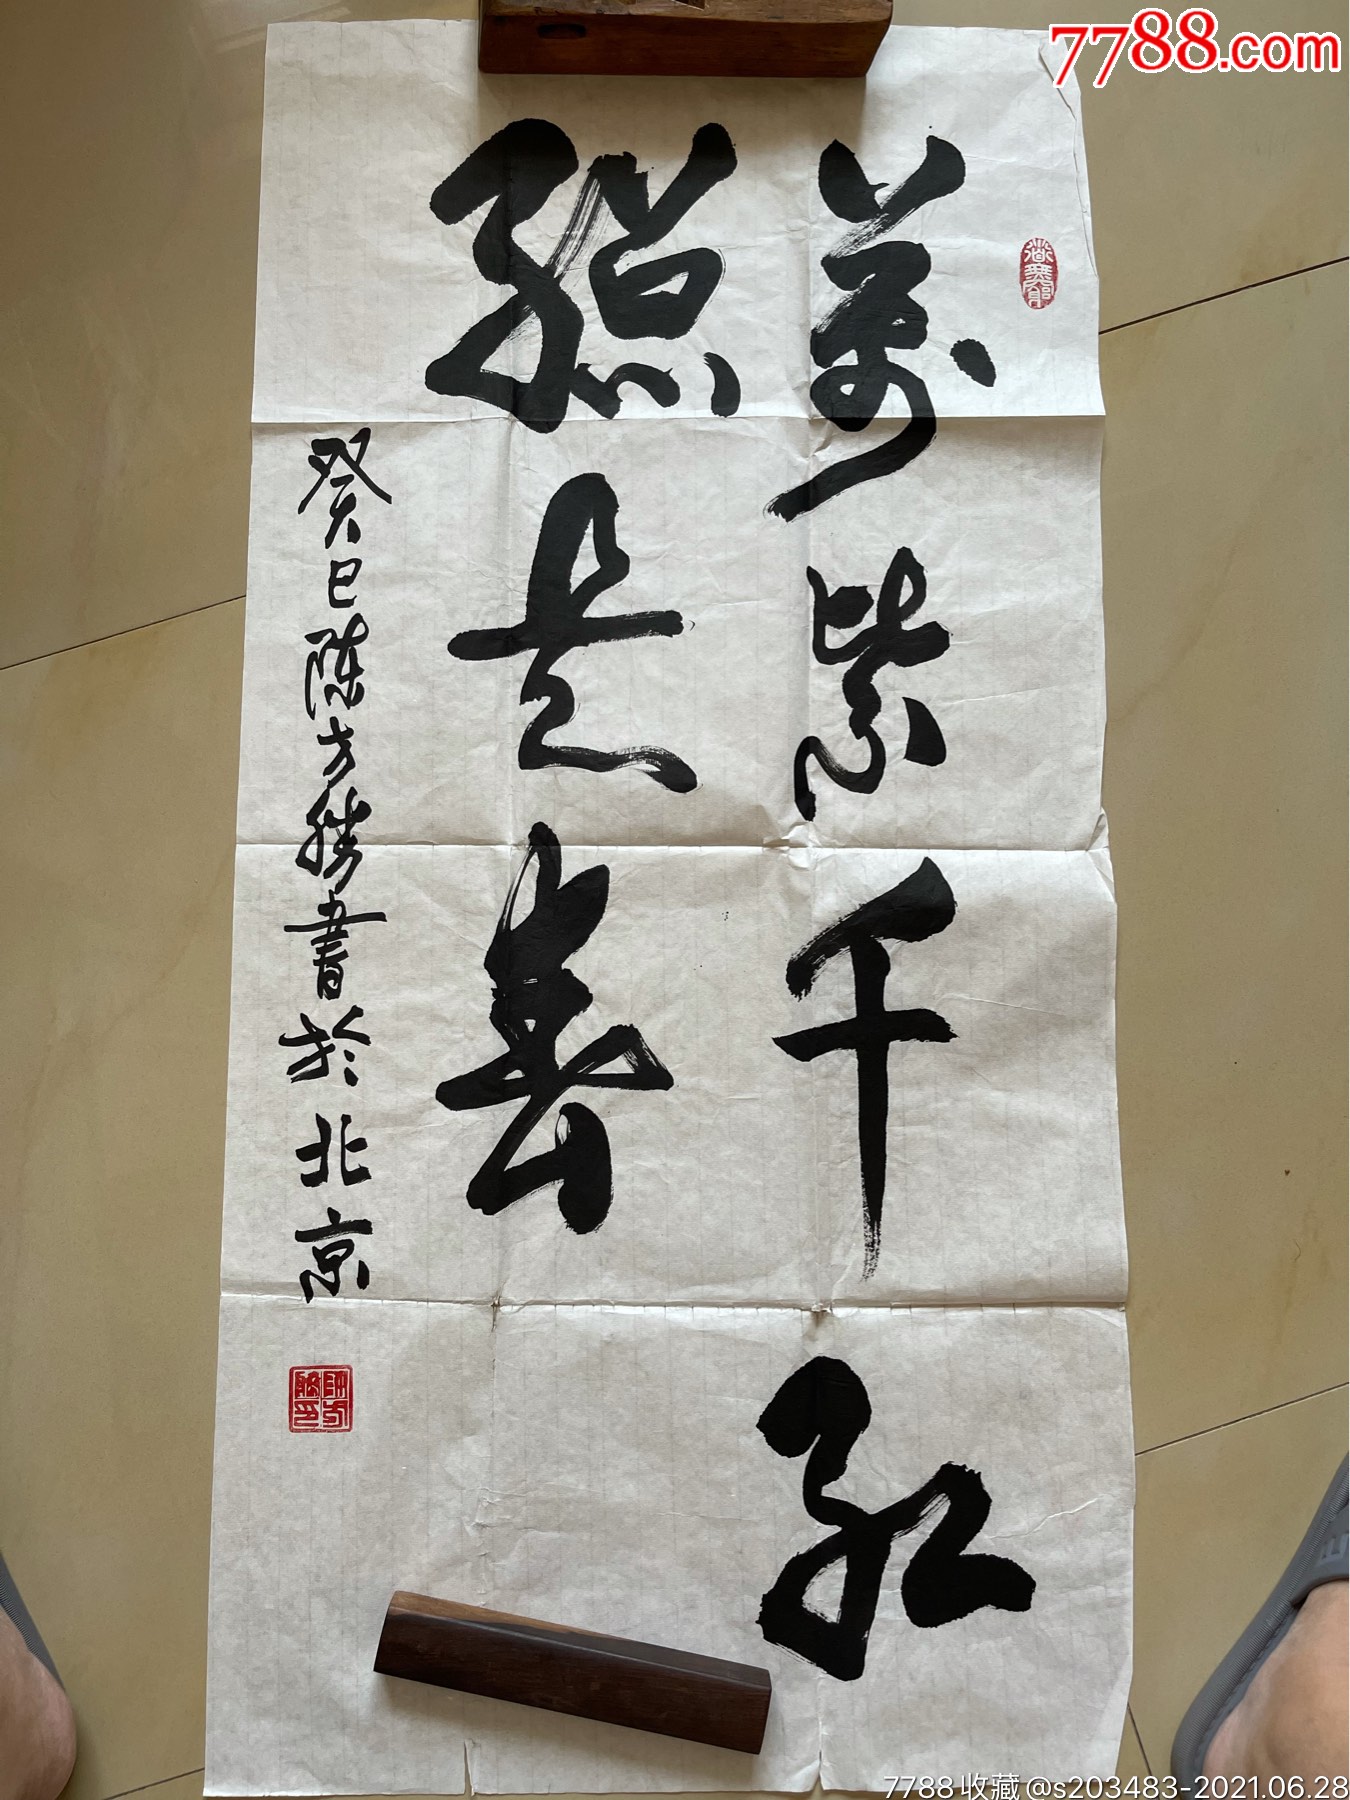 7788.com
萬紫千紅
總是春
癸巳陈方勝書於北京
7788收藏@s203483-2021.06.28